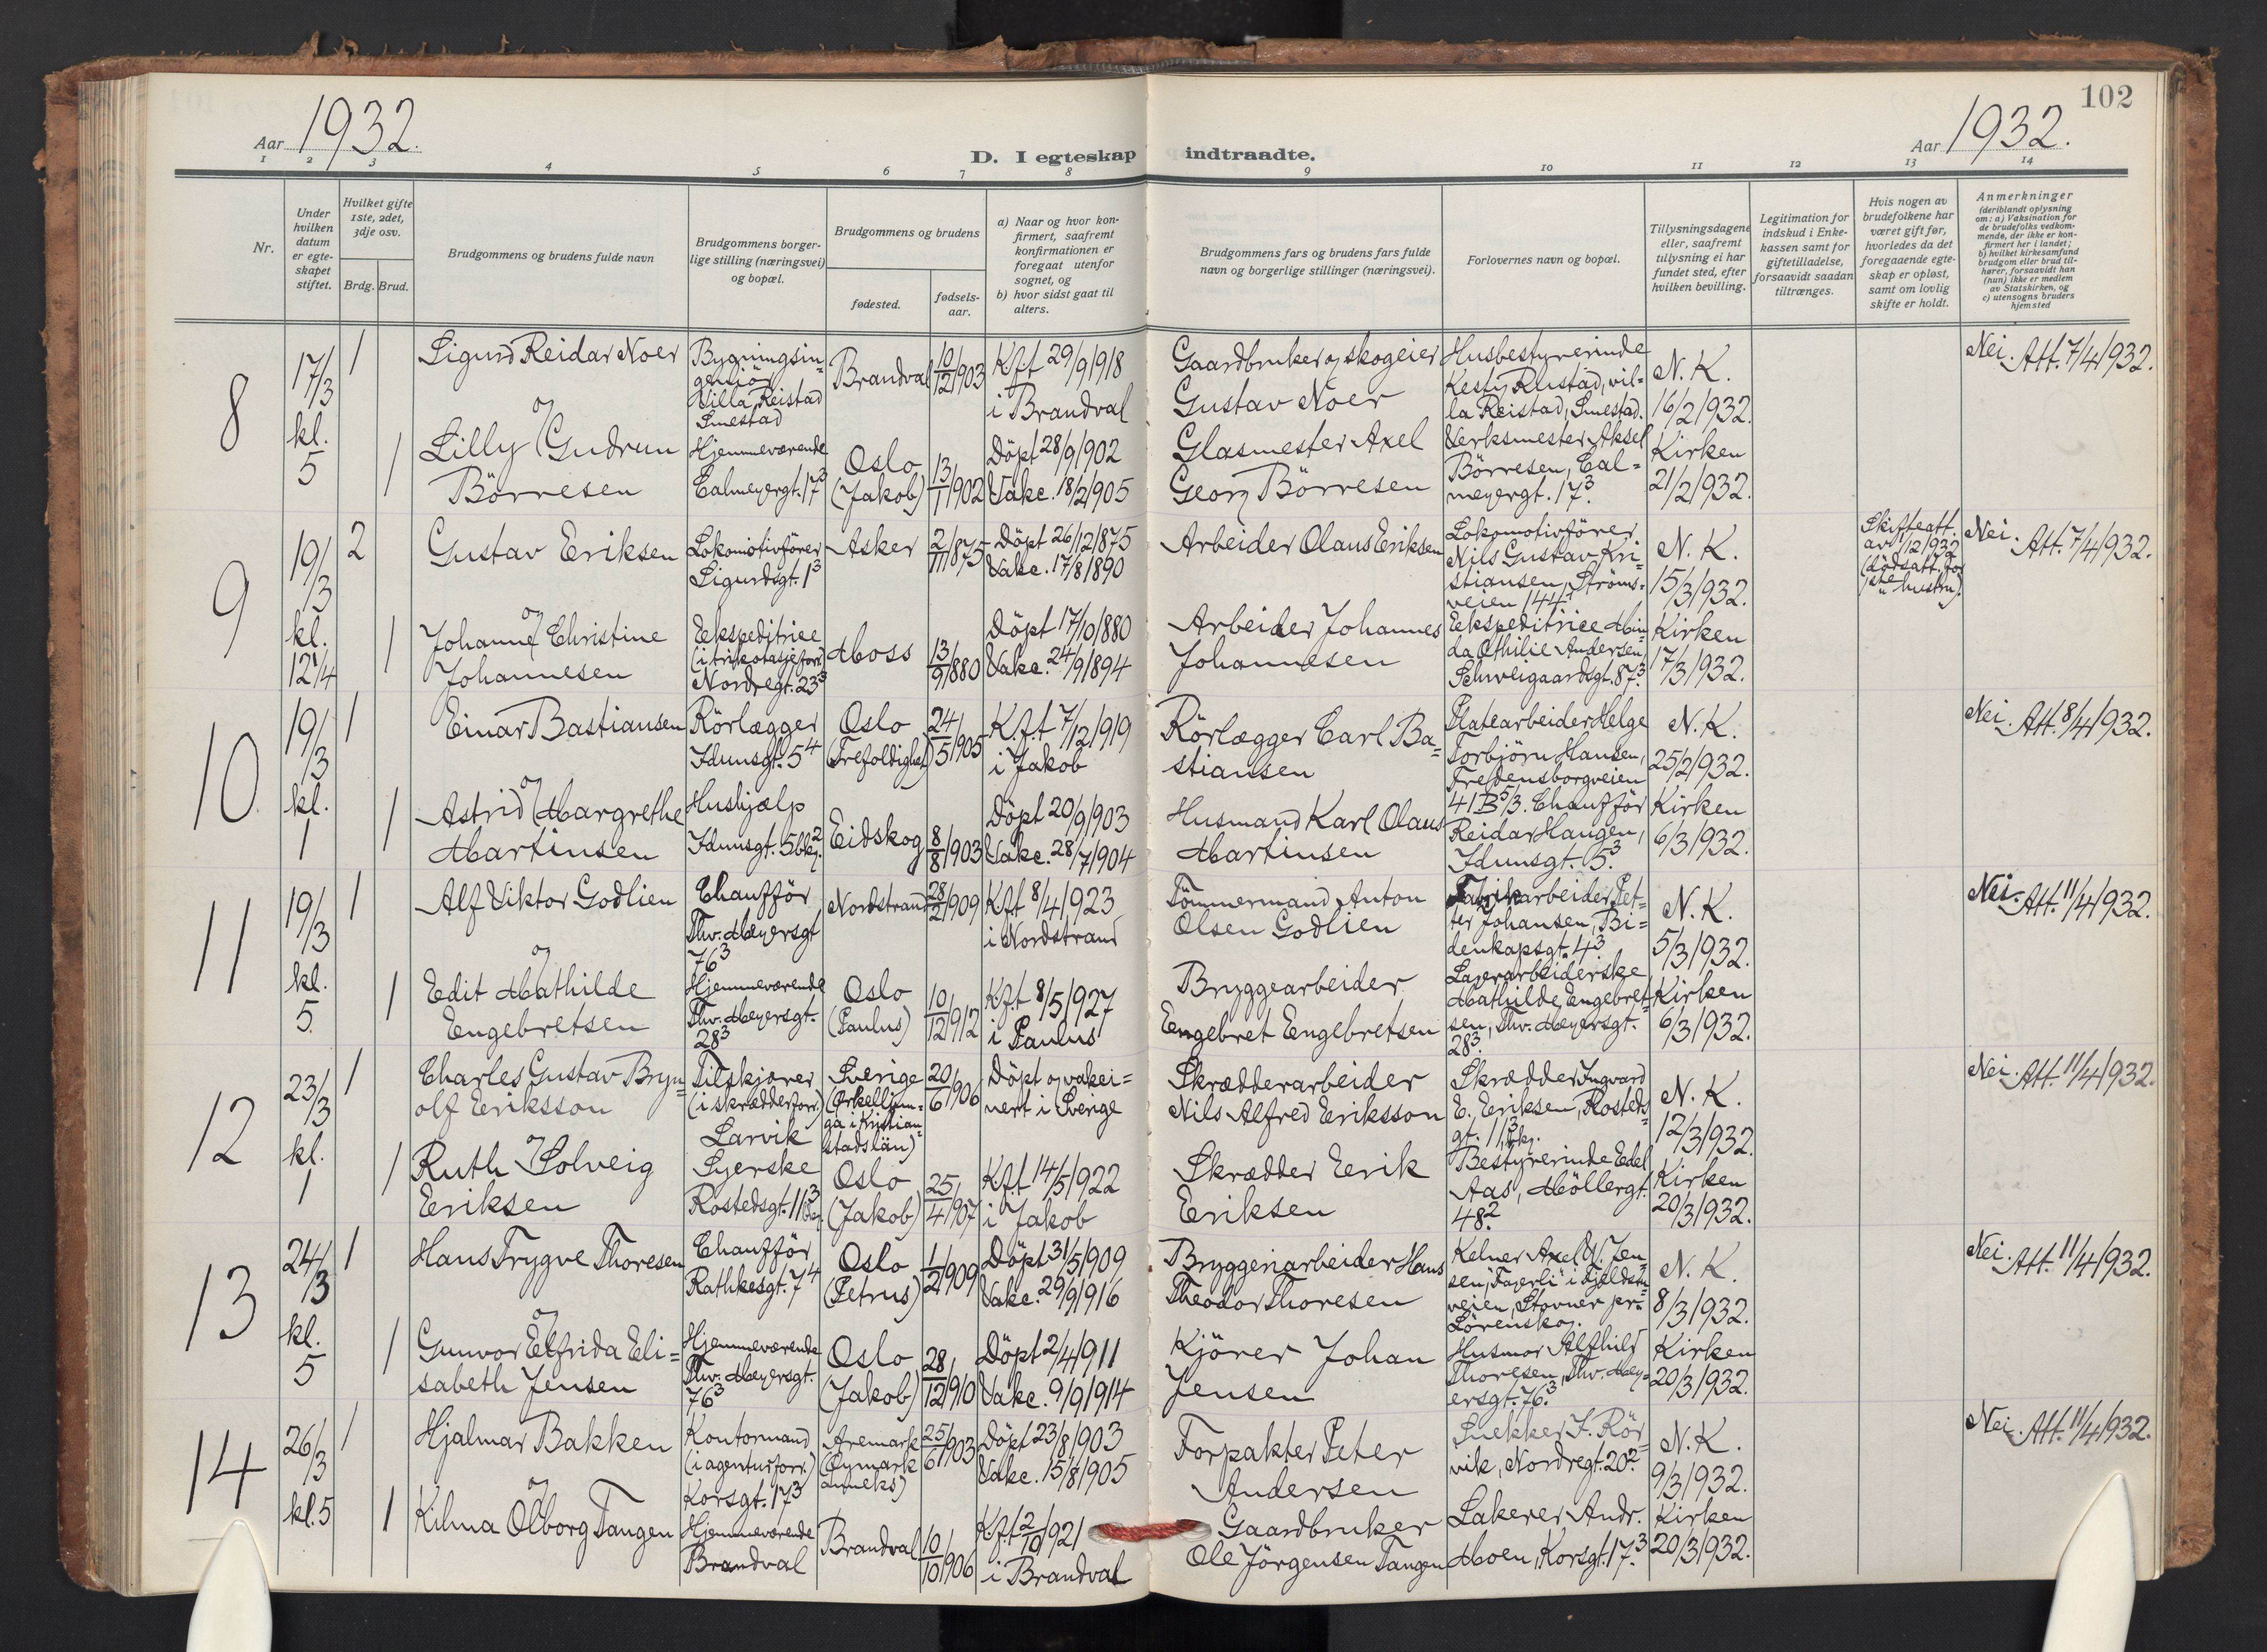 102
Aar 1932.
Aar 1932.
D. I egteskap indtraadte.
1 2 3 4 5 6 7 8 9 10 11 12 13 14
Nr.
Under hvilken datum er egteskapet stiftet.
Hvilket gifte 1ste, 2det, 3dje osv.
Brdg. Brud.
Brudgommens og brudens fulde navn
Brudgommens borgerlige stilling (næringsvei) og bopæl.
Brudgommens og brudens
fødested.
fødselsaar.
a) Naar og hvor konfirmert, saafremt konfirmationen er foregaat utenfor sognet, og
b) hvor sidst gaat til alters.
Brudgommens fars og brudens fars fulde navn og borgerlige stillinger (næringsvei).
Forlovernes navn og bopæl.
Tillysningsdagene eller, saafremt tillysning ei har fundet sted, efter hvilken bevilling.
Legitimation for indskud i Enkekassen samt for giftetilladelse, forsaavidt saadan tiltrænges.
Hvis nogen av brudefolkene har været gift før, hvorledes da det foregaaende egteskap er opløst, samt om lovlig skifte er holdt.
Anmerkninger
(deriblandt oplysning om: a) Vaksination for de brudefolks vedkommende, der ikke er konfirmert her i landet;
b) hvilket kirkesamfund brudgom eller brud tilhører, forsaavidt han (hun) ikke er medlem av Statskirken, og
c) utensogns bruders hjemsted
8
17/3 kl. 5
1
Sigurd Reidar Noer
Bygningsingeniör Villa Reistad Smestad
Brandval
10/12 1903
Kft 29/9 1918 i Brandval
Gaardbruker og skogeier Gustav Noer
Husbestyrerinde Kesty Rustad, villa Reistad, Smestad.
N. K. 16/2 1932.
Nei. Att. 7/4 1932.
og
1
Lilly Gudrun Börresen
Hjemmeværende Calmeyergt. 17³
Oslo (Jakob)
13/1 1902
Döpt 28/9 1902 Vakc. 18/2 1905
Glasmester Axel Georg Börresen
Verksmester Aksel Börresen, Calmeyergt. 17³.
Kirken 21/2 1932.
9
19/3 kl. 12¼
2
Gustav Eriksen
Lokomotivförer Sigurdsgt. 1³
Asker
2/11 1875
Döpt 26/12 1875 Vakc. 17/8 1890
Arbeider Olaus Eriksen
Lokomotivförer Nils Gustav Kristiansen, Strömsveien 144¹
N. K. 15/3 1932.
Skifteatt. av 1/2 1932 (dödsatt. for 1ste hustru).
Nei. Att. 7/4 1932.
og
1
Johanne Christine Johannesen
Ekspeditrice (i trikotasjeforr.) Nordregt. 23³
Moss
13/9 1880
Döpt 17/10 1880 Vakc. 24/9 1894
Arbeider Johannes Johannesen
Ekspeditrice Minda Othilie Andersen, Schweigaardsgt. 87³.
Kirken 17/3 1932.
10
19/3 kl. 1
1
Einar Bastiansen
Rörlægger Idunsgt. 5⁴
Oslo (Trefoldighet)
24/5 1905
Kft 7/12 1919 i Jakob
Rörlægger Carl Bastiansen
Platearbeider Helge Torbjörn Hansen, Fredensborgveien 41 B⁵/3.
N. K. 25/2 1932.
Nei. Att. 8/4 1932.
og
1
Astrid Margrethe Martinsen
Hushjælp Idunsgt. 5bkg.²
Eidskog
8/8 1903
Döpt 20/9 1903 Vakc. 28/7 1904
Husmand Karl Olaus Martinsen
Chaufför Reidar Haugen, Idunsgt. 5³.
Kirken 6/3 1932.
11
19/3 kl. 5.
1
Alf Viktor Godlien
Chaufför Thv. Meyersgt 76³
Nordstrand
28/2 1909
Kft 8/4 1923 i Nordstrand
Tömmermand Anton Olsen Godlien
Fabrikarbeider Petter Johansen, Bidenkapsgt. 4³.
N. K. 5/3 1932.
Nei. Att. 11/4 1932.
og
1
Edit Mathilde Engebretsen
Hjemmeværende Thv. Meyersgt. 28³
Oslo (Paulus)
10/12 1912
Kft 8/5 1927 i Paulus
Bryggearbeider Engebret Engebretsen
Lagerarbeiderske Mathilde Engebretsen, Thv. Meyersgt. 28³.
Kirken 6/3 1932.
12
23/3 kl. 1
1
Charles Gustav Brynolf Eriksson
Tilskjærer (i skrædderforr.) Larvik
Sverige (Örkelljunga i Kristianstadslän)
20/6 1906
Döpt og vakcinert i Sverige
Skrædderarbeider Nils Alfred Eriksson
Skrædder Ingvard E. Eriksen, Rostedsgt. 11³ bkg.
N. K. 12/3 1932.
Nei. Att. 11/4 1932.
og
1
Ruth Solveig Eriksen
Syerske Rostedsgt. 11³
Oslo (Jakob)
25/4 1907
Kft 14/5 1922 i Jakob
Skrædder Erik Eriksen
Bestyrerinde Edel Aas, Möllergt. 48².
Kirken 20/3 1932.
13
24/3 kl. 5
1
Hans Trygve Thoresen
Chaufför Rathkesgt. 7⁴
Oslo (Petrus)
1/2 1909
Döpt 31/5 1909 Vakc. 29/9 1916
Bryggeriarbeider Hans Theodor Thoresen
Kelner Axel W. Jensen, "Fagerli" i Fjeldstuveien, Stovner pr. Lörenskog.
N. K. 8/3 1932.
Nei. Att. 11/4 1932.
og
1
Gunvor Elfrida Elisabeth Jensen
Hjemmeværende Thv. Meyersgt. 76³
Oslo (Jakob)
28/12 1910
Döpt 2/4 1911 Vakc. 9/9 1914
Kjörer Johan Jensen
Husmor Alfhild Thoresen, Thv. Meyersgt. 76³.
Kirken 20/3 1932.
14
26/3 kl. 5
1
Hjalmar Bakken
Kontormand (i agenturforr.) Korsgt. 17³
Aremark (Öymark anneks)
25/6 1903
Döpt 23/8 1903 Vakc. 15/8 1905
Forpakter Peter Andersen
Snekker J. Rörvik, Nordregt. 20².
N. K. 9/3 1932.
Nei. Att. 11/4 1932.
og
1
Kilma Olborg Tangen
Hjemmeværende Brandval
Brandval
10/10 1906
Kft 2/10 1921 i Brandval
Gaardbruker Ole Jörgensen Tangen
Lakerer Andr. Moen, Korsgt. 17³.
Kirken 20/3 1932.